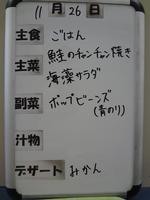 11月26日
主食 ごはん
主菜 鮭のチャンチャン焼き
海藻サラダ
副菜 ポップビーンズ
(青のり)
汁物
デザート みかん